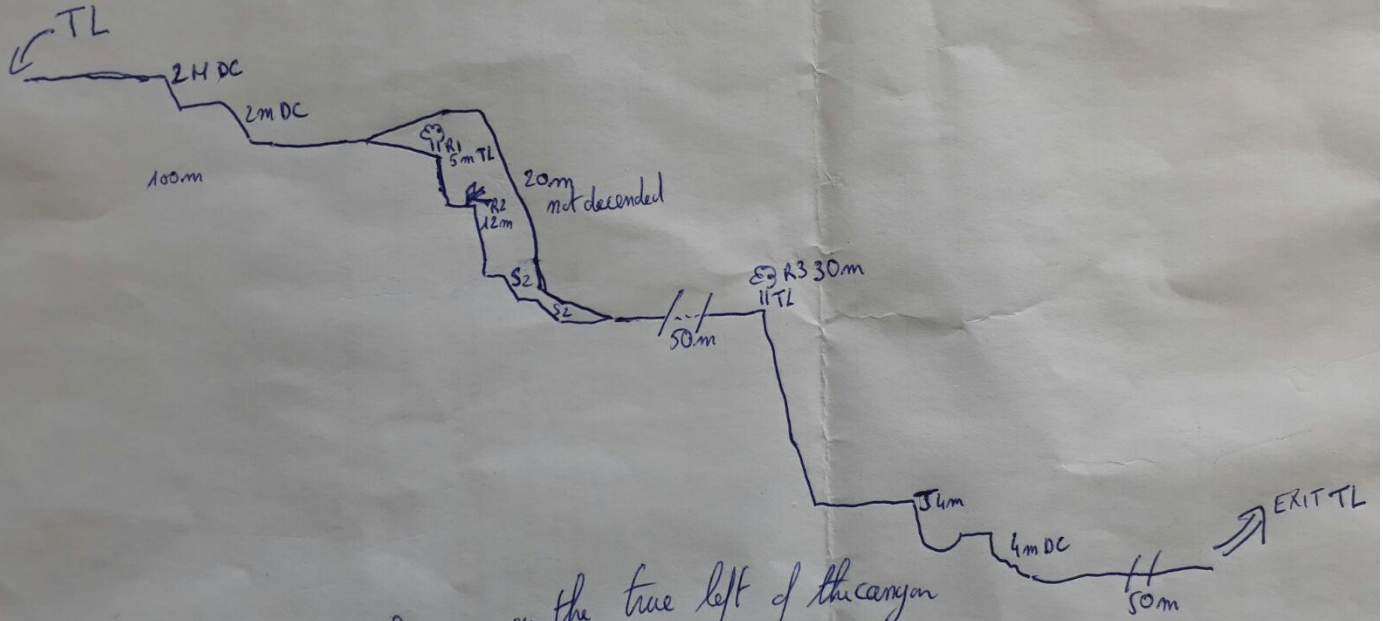 TL
2M DC
2m DC
100m
R1
5m TL
R2
12m
20m
not decended
S2
S2
50m
R3 30m
TL
J4m
4m DC
50m
EXIT TL
the true left of the canyon